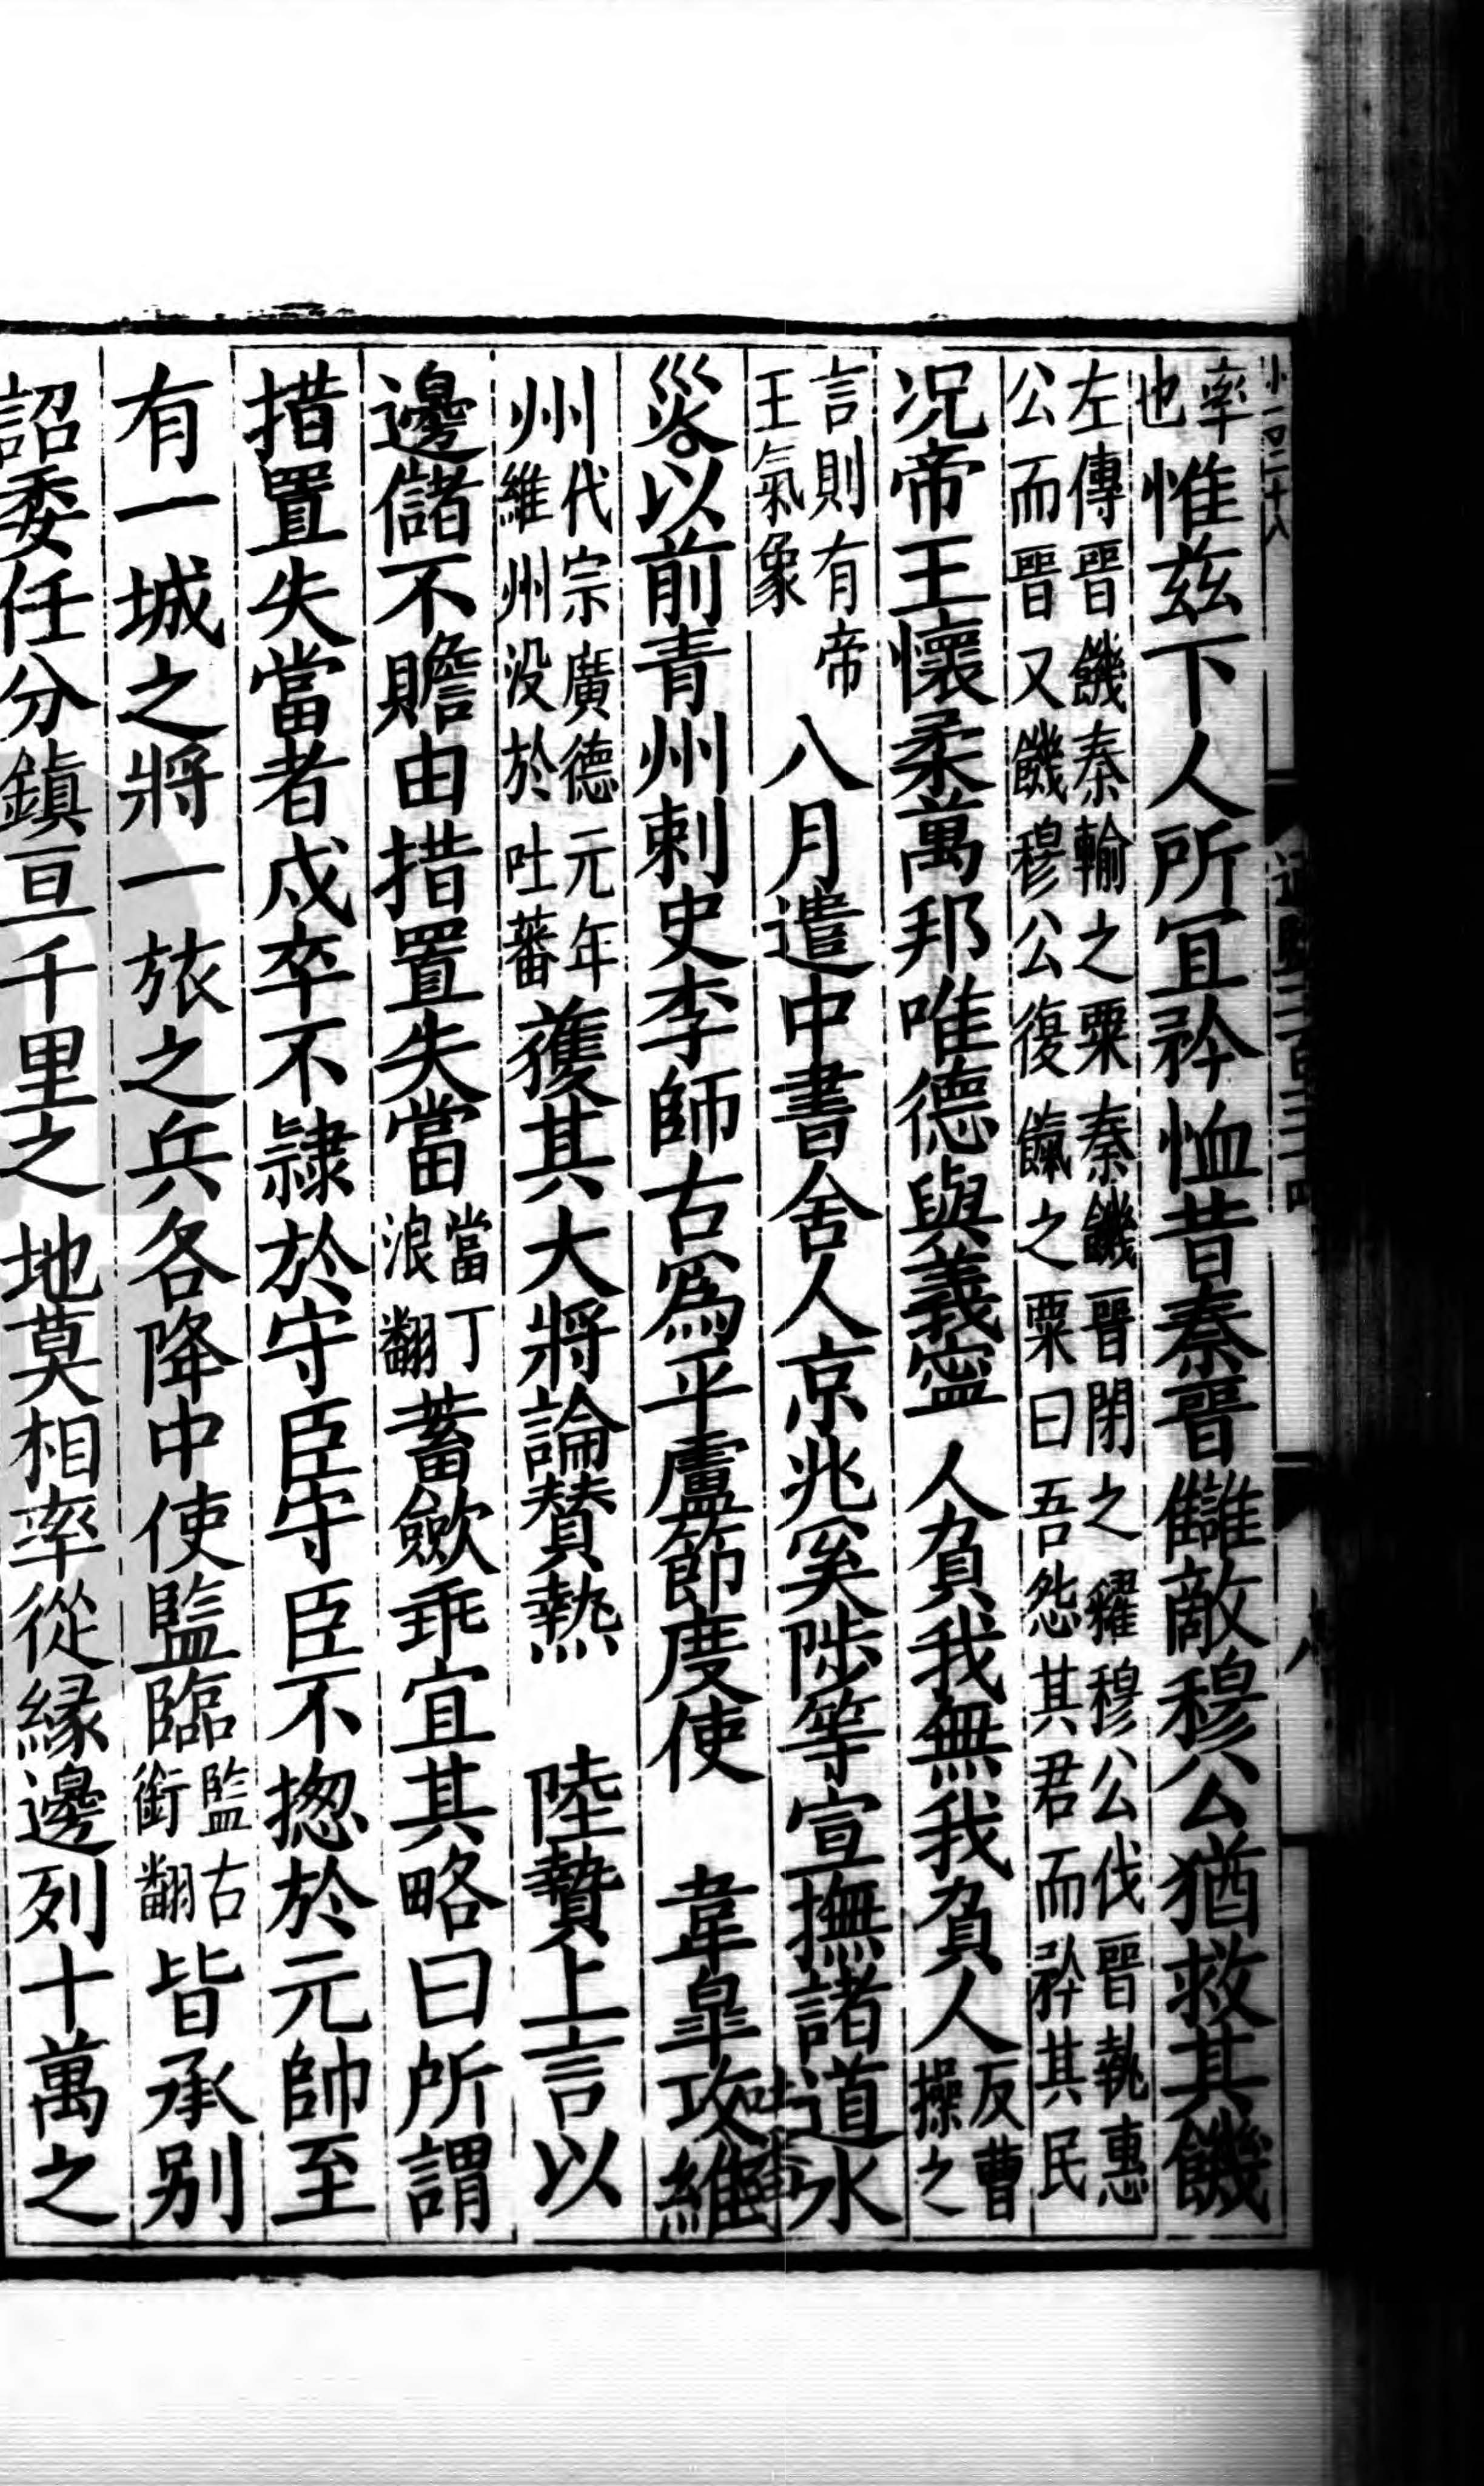 率也惟茲下人所宜矜恤昔秦晉讎敵穆公猶救其饑
左傳晉饑秦輸之粟秦饑晉閉之糴穆公伐晉執惠公而晉又饑穆公復餼之粟曰吾怨其君而矜其民
况帝王懷柔萬邦唯德與義寧人負我無我負人反曹操之
言則有帝王氣象八月遣中書舍人京兆奚陟等宣撫諸道水
災以前青州刺史李師古爲平盧節度使韋皐攻吐蕃維
州代宗廣德元年維州没於吐蕃獲其大將論贊熱陸贄上言以
邊儲不贍由措置失當當丁浪翻蓄歛乖宜其略曰所謂
措置失當者戍卒不隷於守臣守臣不揔於元帥至
有一城之將一旅之兵各降中使監臨監古銜翻皆承别
詔委任分鎮亘千里之地莫相率從緣邊列十萬之